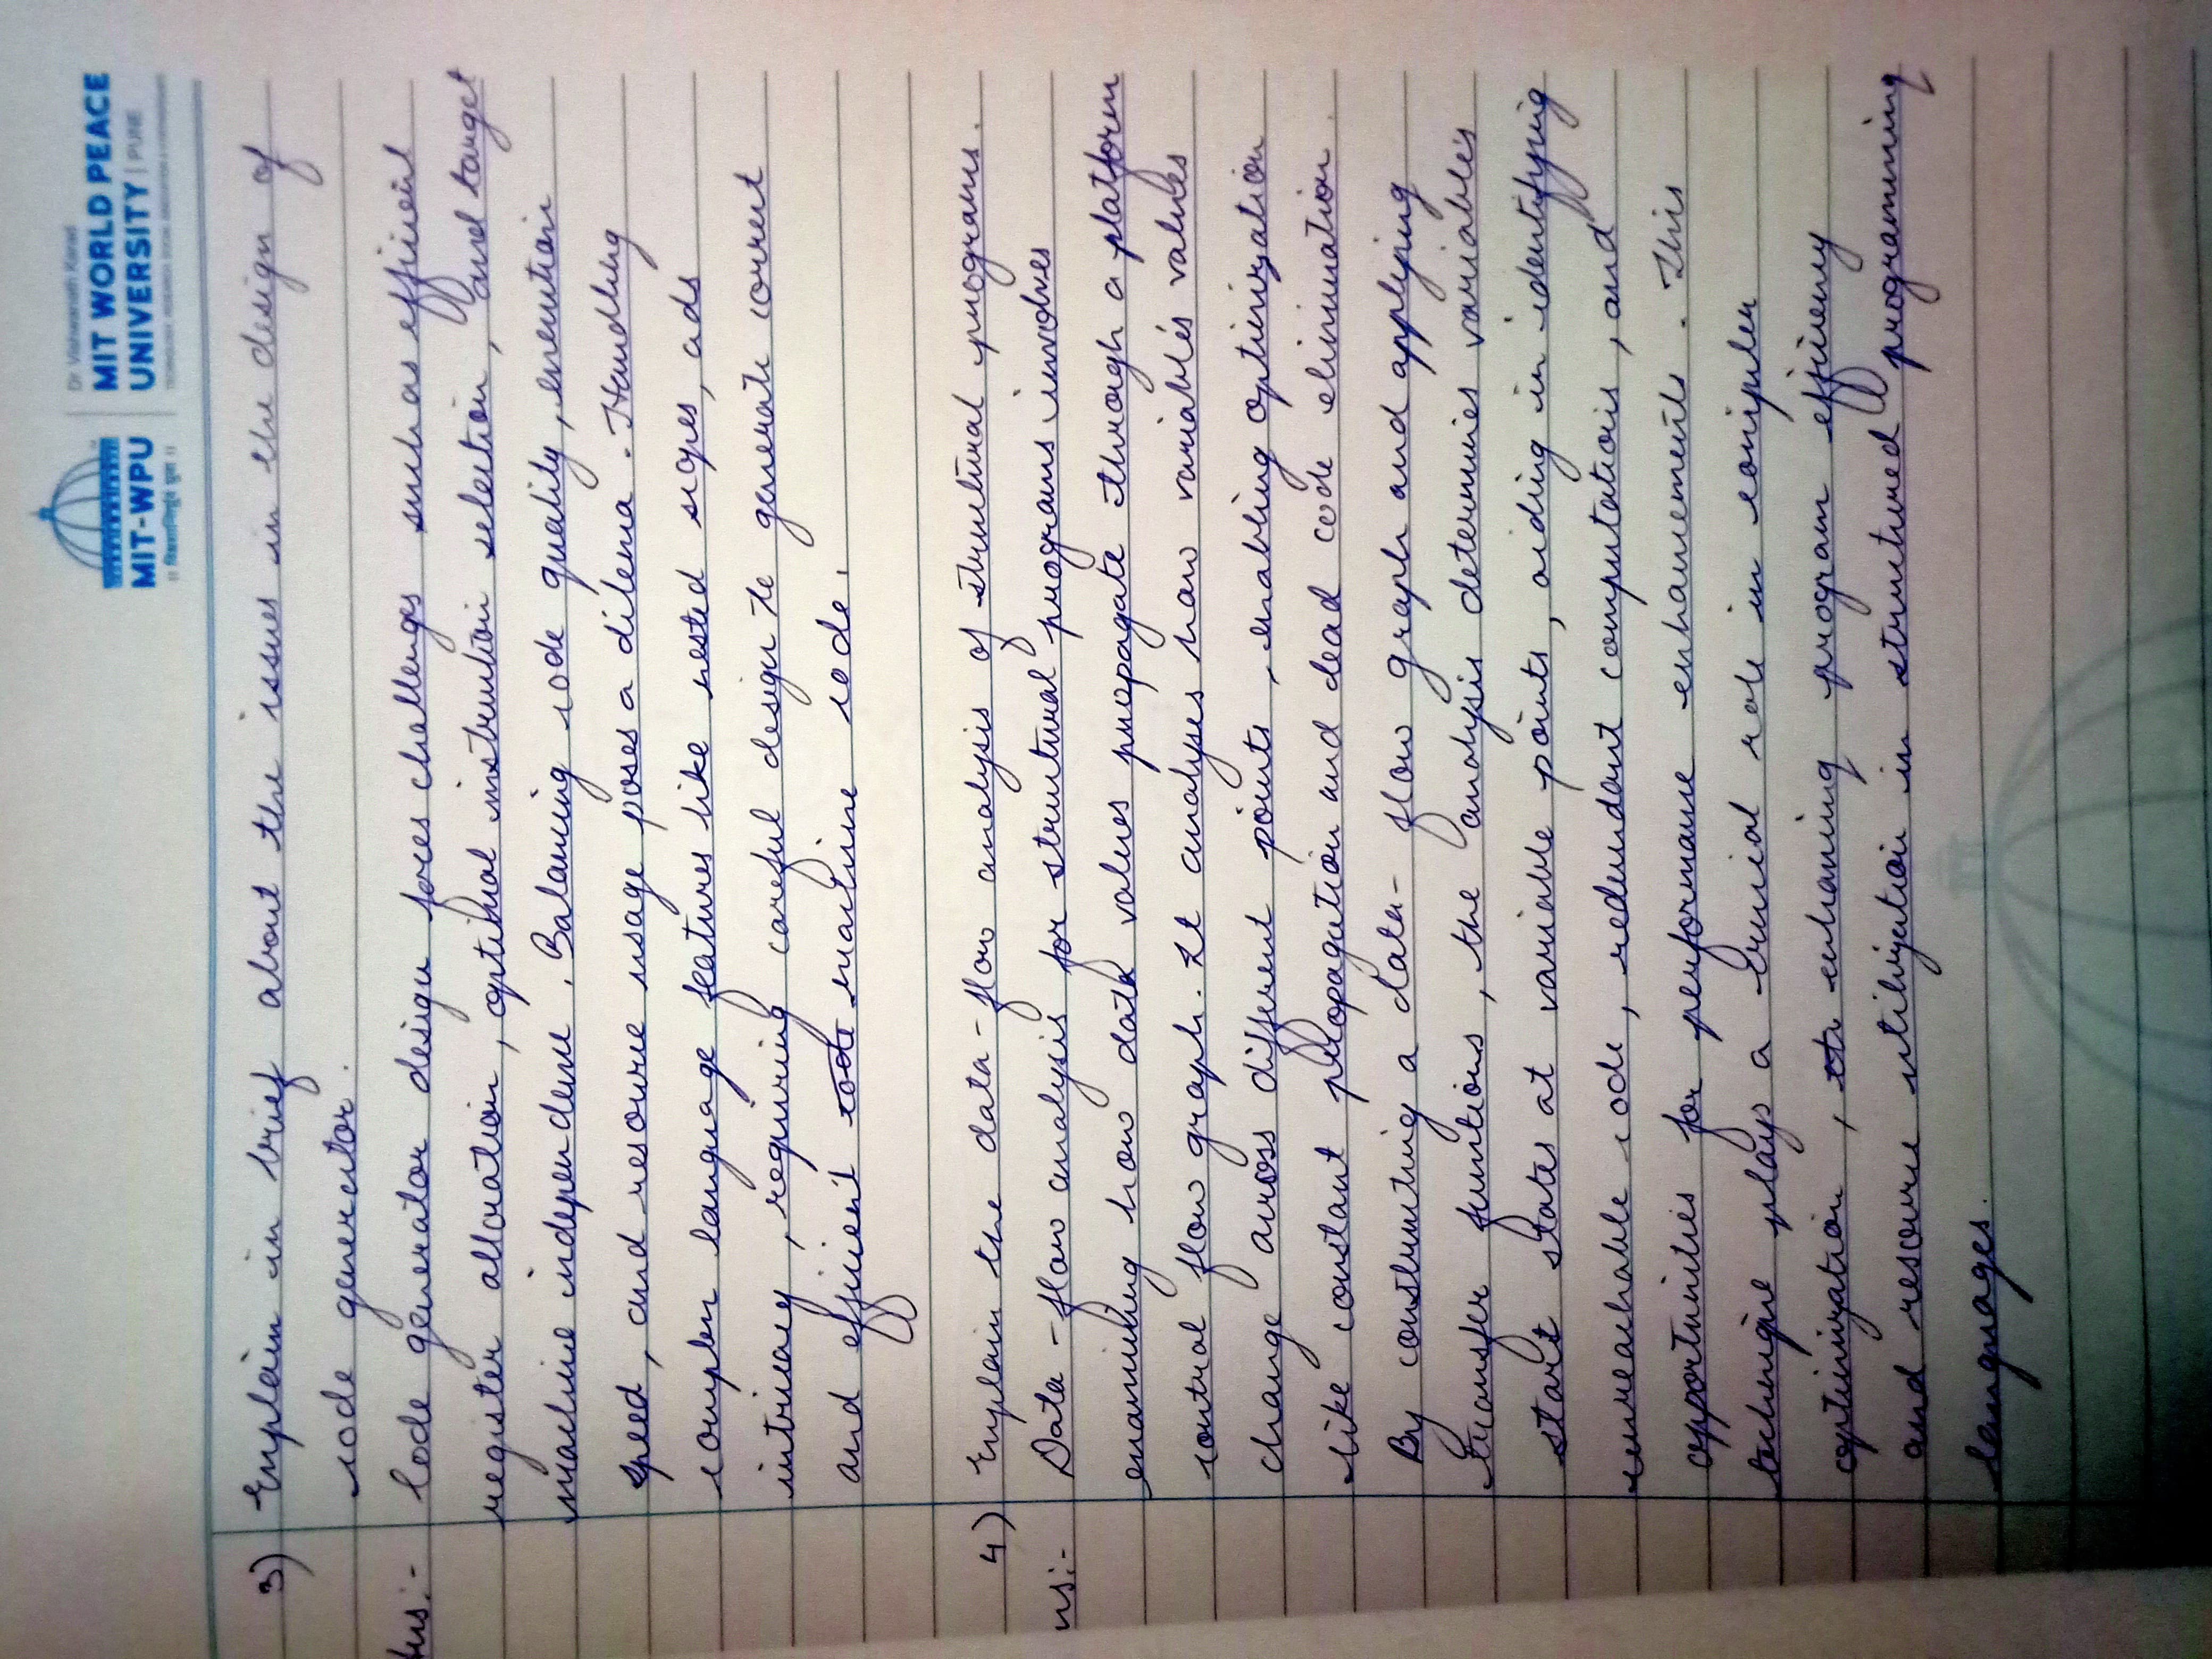 Dr. Vishwanath Karad
MIT WORLD PEACE
UNIVERSITY | PUNE
MIT-WPU
3) Explain in brief about the issues in the design of
code generator.
Ans:- Code generator design faces challenges such as efficient
register allocation, optimal instruction selection, and target
machine independence. Balancing code quality, execution
speed, and resource usage poses a dilema. Handling
complex language features like nested scopes, ads
intricacy, requiring careful design to generate correct
and efficient code machine code.
4) Explain the data-flow analysis of structural programs.
ns:- Data-flow analysis for structural programs involves
examining how data values propagate through a platform
control flow graph. It analyses how variable's values
change across different points, enabling optimization
like constant propagation and dead code elimination.
By constructing a data-flow graph and applying
transfer functions, the analysis determines variable's
start states at variable points, aiding in identifying
unreachable code, redundant computations, and
opportunities for performance enhancements. This
technique plays a crucial role in compiler
optimization, enhancing program efficiency
and resource utilization in structured programming
languages.